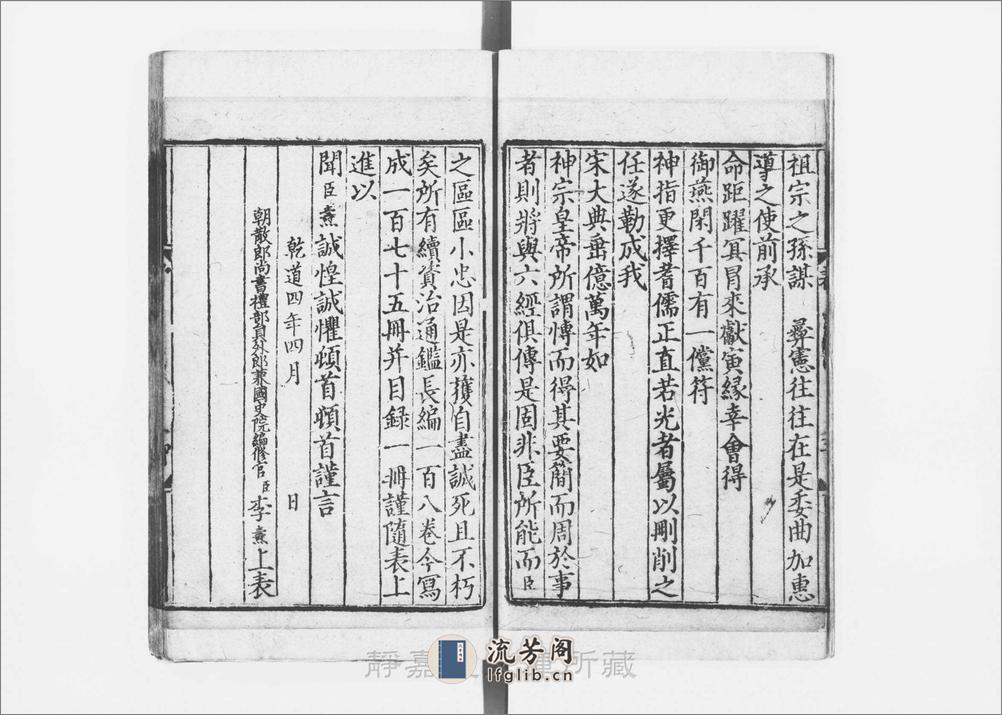 祖宗之孫謀 彛憲往往在是委曲加惠
導之使前承
命距躍冥冒來獻寅縁幸會得
御燕閑千百有一儻符
神指更擇耆儒正直若光者屬以刪削之
任遂勒成我
宋大典垂億萬年如
神宗皇帝所謂博而得其要簡而周於事
者則將與六經俱傳是固非臣所能而臣
之區區小忠因是亦獲自盡誠死且不朽
矣所有續資治通鑑長編一百八卷今寫
成一百七十五冊并目録一冊謹隨表上
進以
聞臣燾誠惶誠懼頓首頓首謹言
乾道四年四月 日
朝散郎尚書禮部員外郎兼國史院編修官臣李燾上表
流芳阁
lfglib.cn
靜嘉
所藏